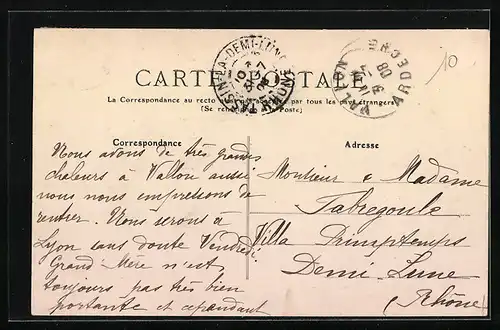 10
TASSIN-LA-DEMI-LUNE
RHÔNE
VALLON
ARDECHE
CARTE POSTALE
La Correspondance au recto par tous les pays étrangers
(Se rens Poste)
Correspondance
Adresse
Nous avons de très grandes
chaleurs à Vallon aussi
nous nous empressons de
rentrer. Nous serons à
Lyon sans doute Vendredi.
Grand-Mère n'est
toujours pas très bien
portante et cependant
Monsieur & Madame
Fabregoule
Villa Primptemps
Demi-Lune
(Rhône)